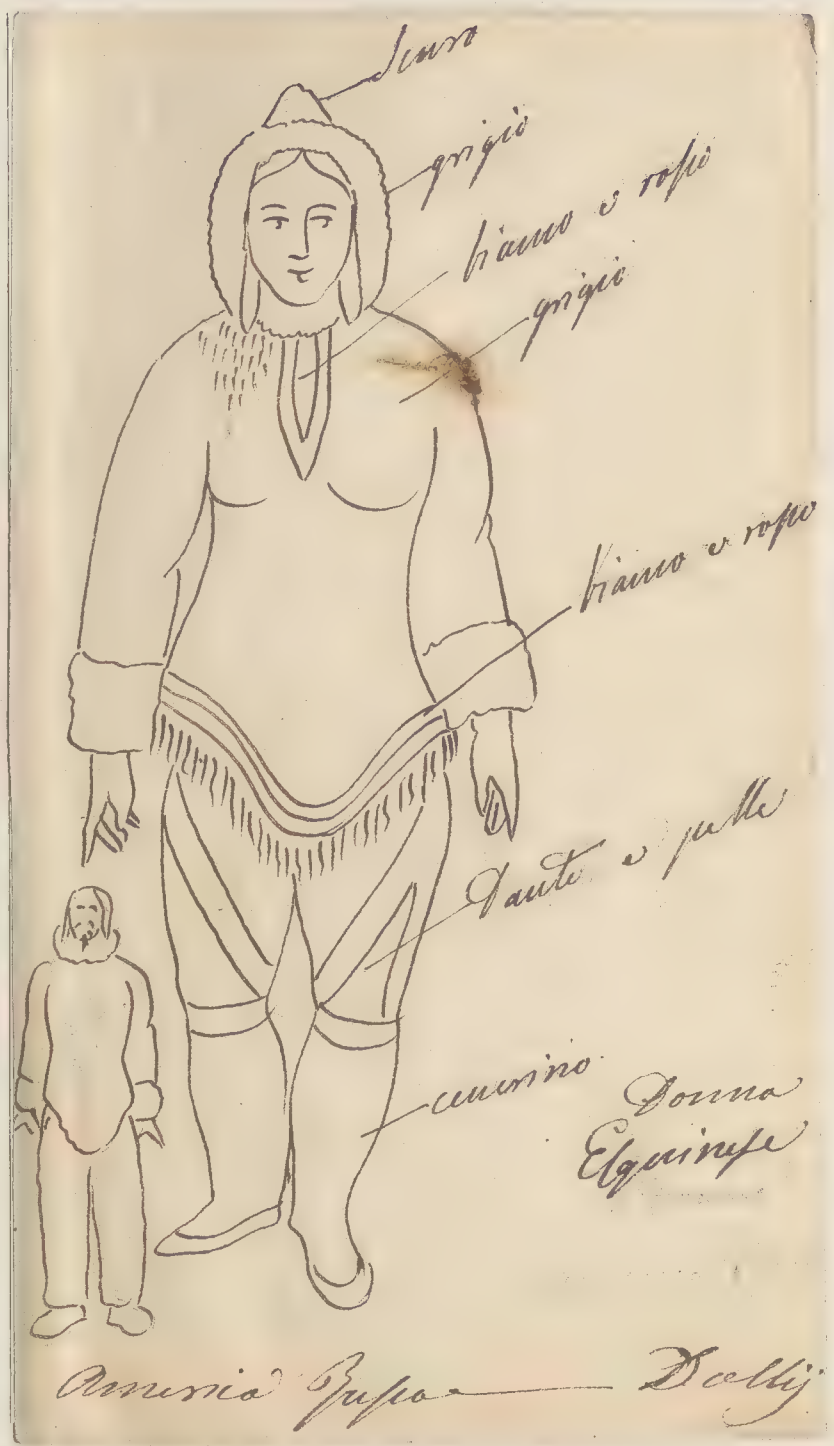 scuro
grigio
bianco e rosso
grigio
bianco e rosso
Dante e pelle
cenerino
Donna
Esquinese
America Russa — Dally